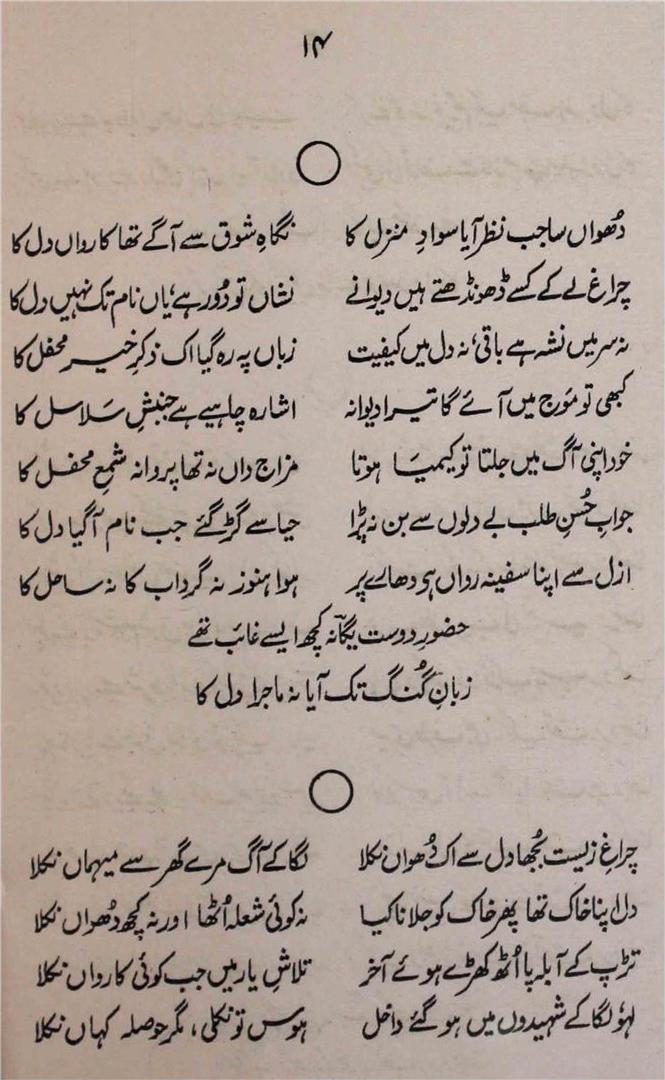 ۱۴
دُھواں سا جب نظر آیا سوادِ منزل کا نگاہِ شوق سے آگے تھا کارواں دل کا
چراغ لے کے کسے ڈھونڈھتے ہیں دیوانے نشاں تو دُور ہے، یاں نام تک نہیں دل کا
نہ سر میں نشہ ہے باقی، نہ دل میں کیفیت زباں پہ رہ گیا اک ذکرِ خیر محفل کا
کبھی تو مَوج میں آئے گا تیرا دیوانہ اشارہ چاہیے ہے جنبشِ سَلاسل کا
خود اپنی آگ میں جلتا تو کیمیَا ہوتا مزاج داں نہ تھا پروانہ شمعِ محفل کا
جوابِ حُسنِ طلب بے دلوں سے بن نہ پڑا حیا سے گڑ گئے جب نام آگیا دل کا
ازل سے اپنا سفینہ رواں ہر دھارے پر ہوا ہنوز نہ گرداب کا نہ ساحل کا
حضورِ دوست یگانہؔ کچھ ایسے غائب تھے
زبانِ گُنگ تک آیا نہ ماجرا دل کا
چراغِ زیست بُجھا دل سے اک دُھواں نکلا لگا کے آگ مرے گھر سے میہماں نکلا
دل اپنا خاک تھا پھر خاک کو جلانا کیا نہ کوئی شعلہ اُٹھا اور نہ کچھ دُھواں نکلا
تڑپ کے آبلہ پا اُٹھ کھڑے ہوئے آخر تلاشِ یار میں جب کوئی کارواں نکلا
لہو لگا کے شہیدوں میں ہو گئے داخل ہوس تو نکلی، مگر حوصلہ کہاں نکلا